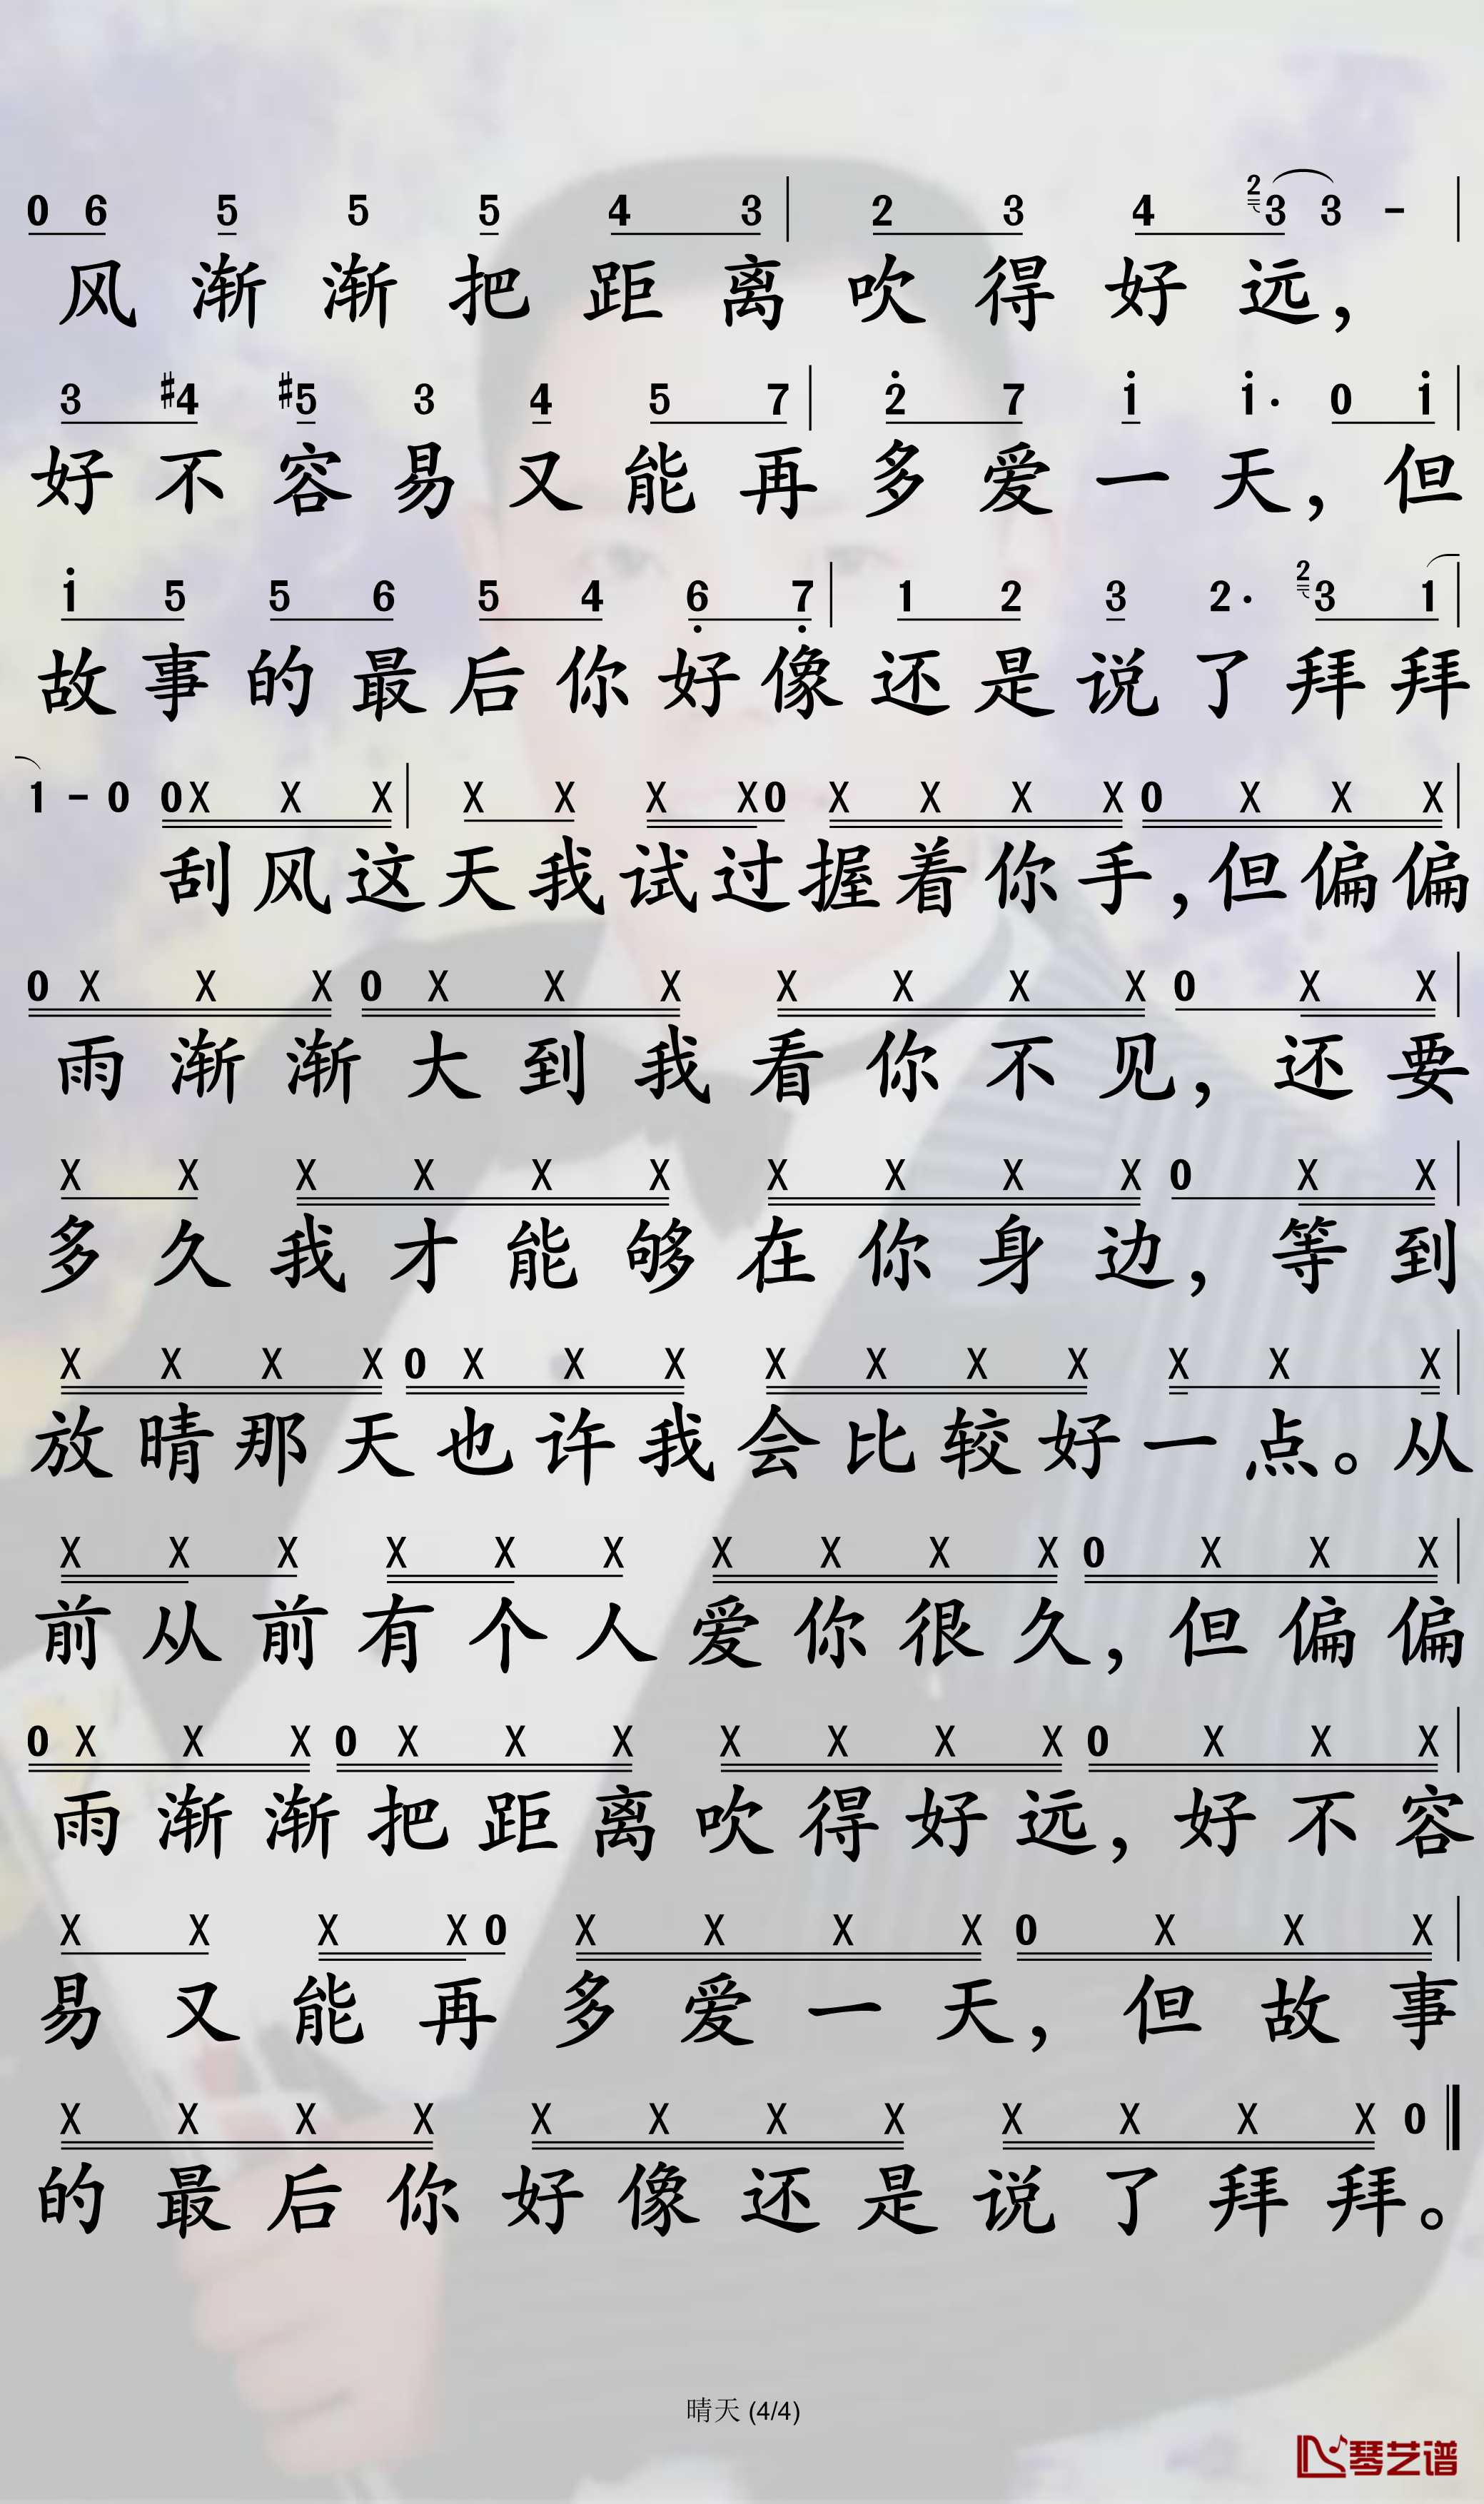 0 6 5 5 5 4 3 | 2 3 4 2 3 3 - |
风渐渐把距离吹得好远，
3 #4 #5 3 4 5 7 | 2̇ 7 1̇ 1̇· 0 1̇ |
好不容易又能再多爱一天，但
1̇ 5 5 6 5 4 6̣ 7̣ | 1 2 3 2· 2 3 1 |
故事的最后你好像还是说了拜拜
1 - 0 0X X X | X X X X0 X X X X 0 X X X |
刮风这天我试过握着你手，但偏偏
0 X X X 0 X X X X X X X 0 X X |
雨渐渐大到我看你不见，还要
X X X X X X X X X X 0 X X |
多久我才能够在你身边，等到
X X X X 0 X X X X X X X X X X |
放晴那天也许我会比较好一点。从
X X X X X X X X X X 0 X X X |
前从前有个人爱你很久，但偏偏
0 X X X 0 X X X X X X X 0 X X X |
雨渐渐把距离吹得好远，好不容
X X X X 0 X X X X 0 X X X |
易又能再多爱一天，但故事
X X X X X X X X X X X X 0
的最后你好像还是说了拜拜。
晴天 (4/4)
琴艺谱